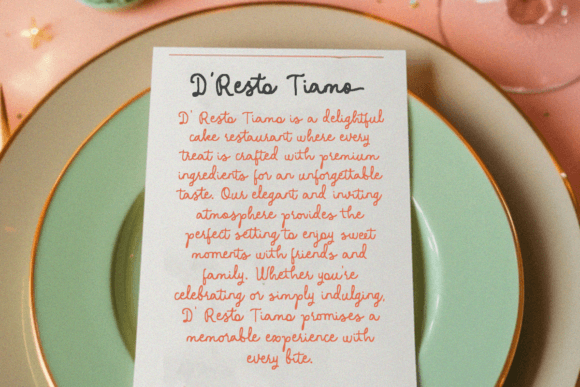 D'Resto Tiano
D' Resto Tiano is a delightful
cake restaurant where every
treat is crafted with premium
ingredients for an unforgettable
taste. Our elegant and inviting
atmosphere provides the
perfect setting to enjoy sweet
moments with friends and
family. Whether you're
celebrating or simply indulging,
D' Resto Tiano promises a
memorable experience with
every bite.